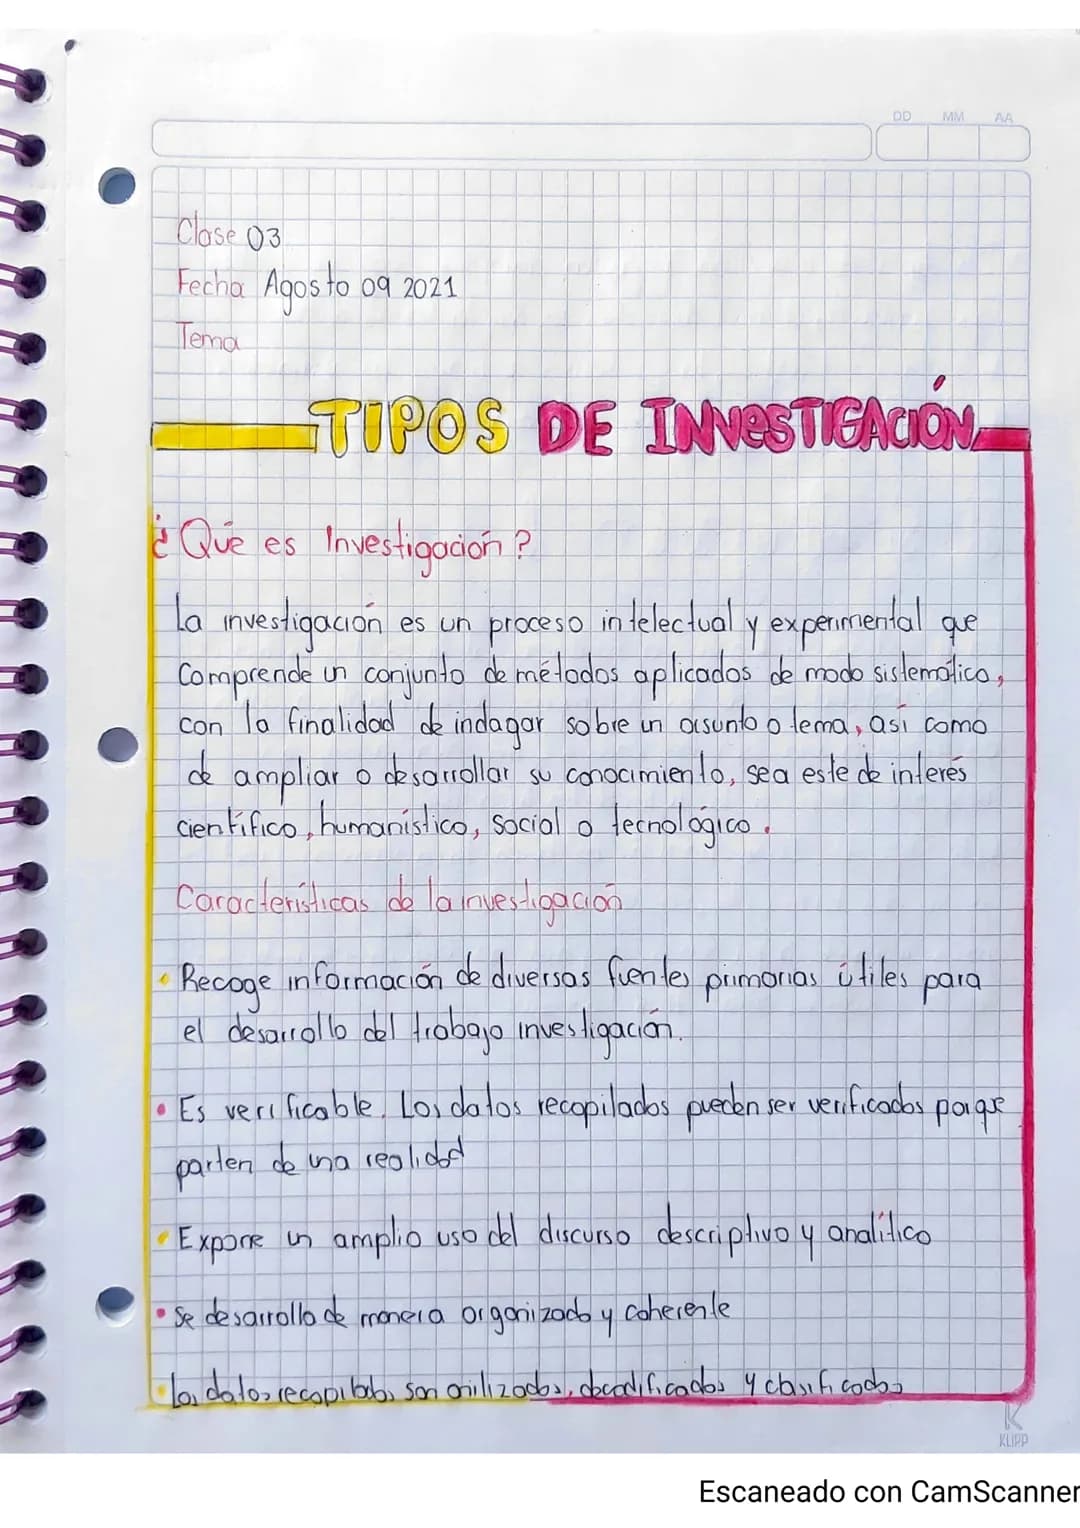 DD MM AA
Clase 03
Fecha Agosto 09 2021
Tema
TIPOS DE INVESTIGACIÓN
¿Qué es Investigación?
La investigación es un proceso intelectual y experimental que
Comprende un conjunto de métodos aplicados de modo sistemático,
con la finalidad de indagar sobre un asunto o tema, así como
de ampliar o desarrollar su conocimiento, sea este de interés
científico, humanístico, social o tecnológico.
Características de la investigación
• Recoge información de diversas fuentes primarias útiles para
el desarrollo del trabajo investigación.
• Es verificable. Los datos recopilados pueden ser verificados porque
parten de una realidad
• Expone un amplio uso del discurso descriptivo y analítico
• Se desarrolla de manera organizada y coherente
• Los datos recopilados son analizados, decodificados y clasificados
K
KLIPP
Escaneado con CamScanner